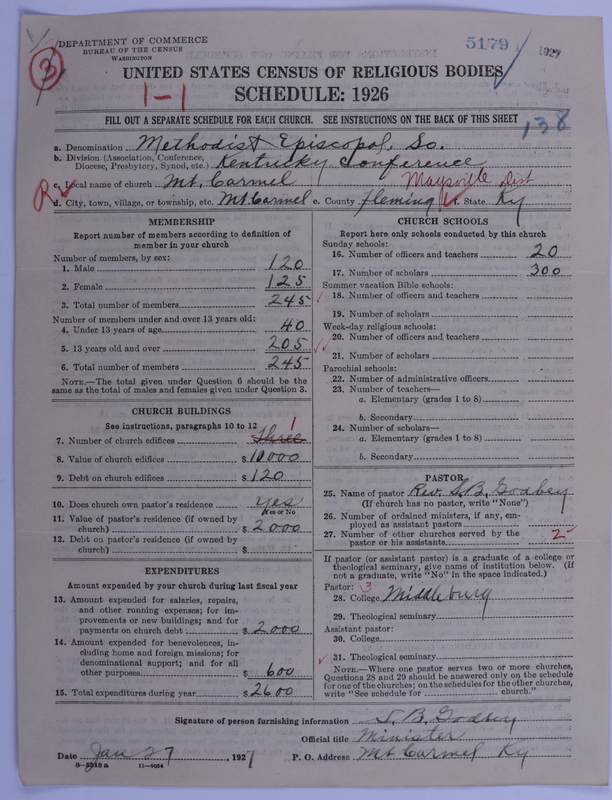 DEPARTMENT OF COMMERCE
BUREAU OF THE CENSUS
WASHINGTON
5179
1927
3
UNITED STATES CENSUS OF RELIGIOUS BODIES
1-1
SCHEDULE: 1926
FILL OUT A SEPARATE SCHEDULE FOR EACH CHURCH. SEE INSTRUCTIONS ON THE BACK OF THIS SHEET
138
a. Denomination Methodist Episcopal, So.
b. Division (Association, Conference, Diocese, Presbytery, Synod, etc.) Kentucky Conference
R c. Local name of church Mt. Carmel Maysville Dist
d. City, town, village, or township, etc. Mt Carmel e. County Fleming f. State Ky
MEMBERSHIP
Report number of members according to definition of
member in your church
Number of members, by sex:
1. Male 120
2. Female 125
3. Total number of members 245
Number of members under and over 13 years old:
4. Under 13 years of age 40
5. 13 years old and over 205
6. Total number of members 245
NOTE.—The total given under Question 6 should be the
same as the total of males and females given under Question 3.
CHURCH BUILDINGS
See instructions, paragraphs 10 to 12
7. Number of church edifices Three 1
8. Value of church edifices $ 10000
9. Debt on church edifices $ 120
10. Does church own pastor's residence Yes
Yes or No
11. Value of pastor's residence (if owned by
church) $ 2000
12. Debt on pastor's residence (if owned by
church) $
EXPENDITURES
Amount expended by your church during last fiscal year
13. Amount expended for salaries, repairs,
and other running expenses; for im-
provements or new buildings; and for
payments on church debt $ 2000
14. Amount expended for benevolences, in-
cluding home and foreign missions; for
denominational support; and for all
other purposes $ 600
15. Total expenditures during year $ 2600
CHURCH SCHOOLS
Report here only schools conducted by this church
Sunday schools:
16. Number of officers and teachers 20
17. Number of scholars 300
Summer vacation Bible schools:
18. Number of officers and teachers
19. Number of scholars
Week-day religious schools:
20. Number of officers and teachers
21. Number of scholars
Parochial schools:
22. Number of administrative officers
23. Number of teachers—
a. Elementary (grades 1 to 8)
b. Secondary
24. Number of scholars—
a. Elementary (grades 1 to 8)
b. Secondary
PASTOR
25. Name of pastor Rev. S. B. Godbey
(If church has no pastor, write "None")
26. Number of ordained ministers, if any, em-
ployed as assistant pastors
27. Number of other churches served by the
pastor or his assistants 2
If pastor (or assistant pastor) is a graduate of a college or
theological seminary, give name of institution below. (If
not a graduate, write "No" in the space indicated.)
Pastor: 3
28. College Middleburg
29. Theological seminary
Assistant pastor:
30. College
31. Theological seminary
NOTE.—Where one pastor serves two or more churches,
Questions 28 and 29 should be answered only on the schedule
for one of the churches; on the schedules for the other churches,
write "See schedule for church."
Signature of person furnishing information S. B. Godbey
Official title Minister
Date Jan 27, 1927 P. O. Address Mt Carmel Ky
8-5518a 11-9034